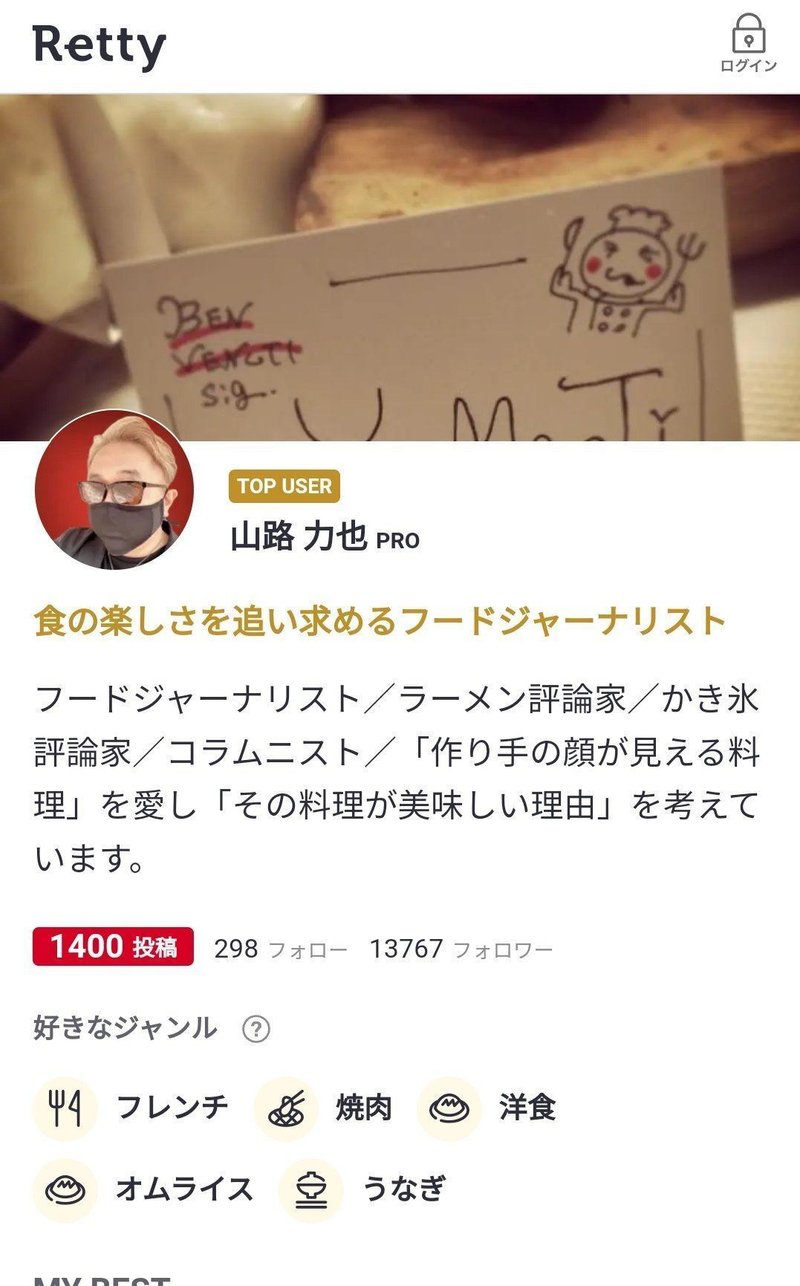 Retty
ログイン
BEN
VENUTI
sig.
TOP USER
山路 力也 PRO
食の楽しさを追い求めるフードジャーナリスト
フードジャーナリスト／ラーメン評論家／かき氷
評論家／コラムニスト／「作り手の顔が見える料
理」を愛し「その料理が美味しい理由」を考えて
います。
1400 投稿 298 フォロー 13767 フォロワー
好きなジャンル ?
フレンチ 焼肉 洋食
オムライス うなぎ
MY BEST